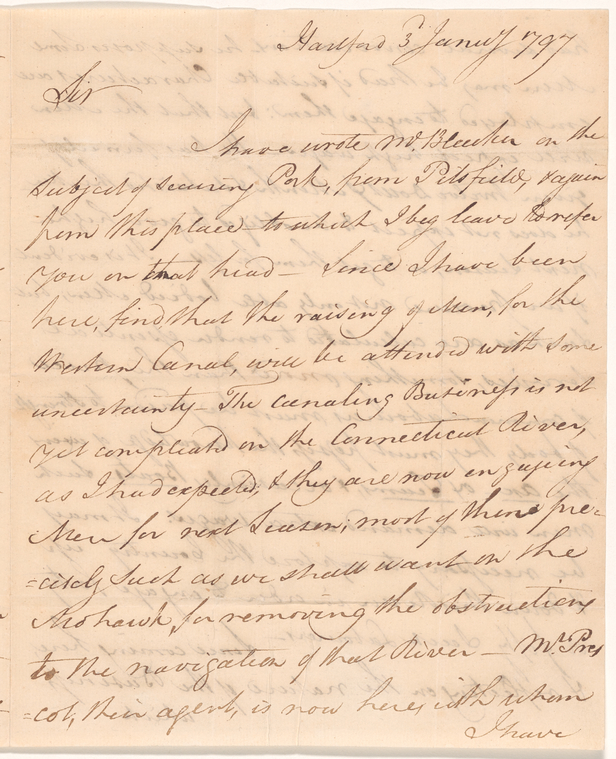 Hartford 3d Januy 1797
Sir
I have wrote Mr. Bleecker on the
subject of securing Pork, from Pitsfield, & again
from this place – to which I beg leave to refer
you on that head – Since I have been
here, find, that the raising of Men, for the
Western Canal, will be attended with some
uncertainty – The canaling Business is not
yet compleatd on the Connecticut River,
as I had expected, & they are now engageing
Men for next Season; most of them pre=
=cisely such as we shall want on the
Mohawk, for removing the obstructions
to the navigation of that River – Mr. Pres
=cot, their agent, is now here, with whom
I have